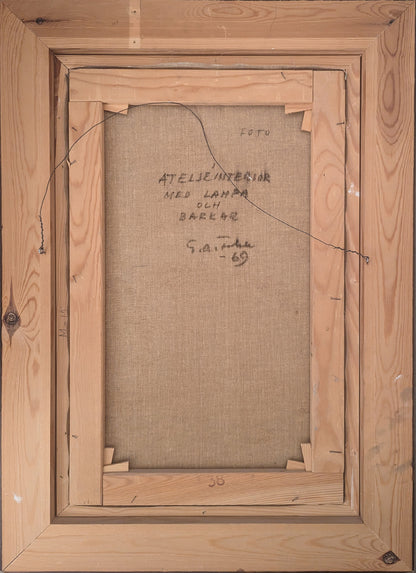 FOTO
ATELJEINTERIÖR
MED LAMPA
OCH
BARKAR
-69
M-15
38